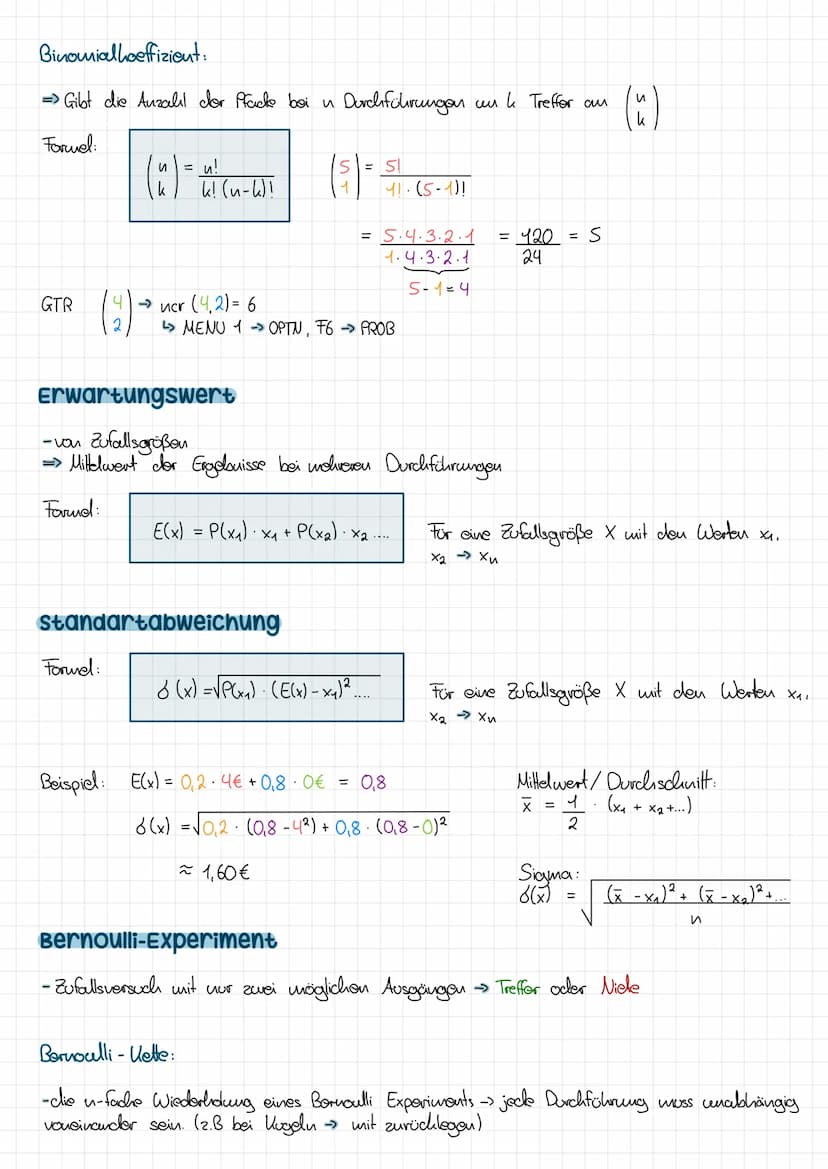 Binomialkoeffizient:
=> Gibt die Anzahl der Pfade bei n Durchführungen an k Treffer an (n k)
Formel:
(n k) = n! / k! (n-k)!
(5 1) = 5! / 1! · (5-1)!
= 5·4·3·2·1 / 1·4·3·2·1 = 120 / 24 = 5
5-1=4
GTR (4 2) → ncr (4,2) = 6
↳ MENU 1 → OPTN, F6 → PROB
Erwartungswert
- von Zufallsgrößen
=> Mittelwert der Ergebnisse bei mehreren Durchführungen
Formel:
E(x) = P(x₁) · x₁ + P(x₂) · x₂ ....
Für eine Zufallsgröße X mit den Werten x₁,
x₂ → xn
Standartabweichung
Formel:
δ(x) = √P(x₁) · (E(x) - x₁)² ....
Für eine Zufallsgröße X mit den Werten x₁,
x₂ → xn
Beispiel: E(x) = 0,2 · 4€ + 0,8 · 0€ = 0,8
δ(x) = √0,2 · (0,8 - 4²) + 0,8 · (0,8 - 0)²
≈ 1,60€
Mittelwert / Durchschnitt:
x̄ = 1/2 · (x₁ + x₂ +...)
Sigma:
δ(x) = √(x̄ - x₁)² + (x̄ - x₂)² + ... / n
Bernoulli-Experiment
- Zufallsversuch mit nur zwei möglichen Ausgängen → Treffer oder Niete
Bernoulli - Kette:
- die n-fache Wiederholung eines Bernoulli Experiments → jede Durchführung muss unabhängig
voneinander sein. (z.B bei Kugeln → mit zurücklegen)